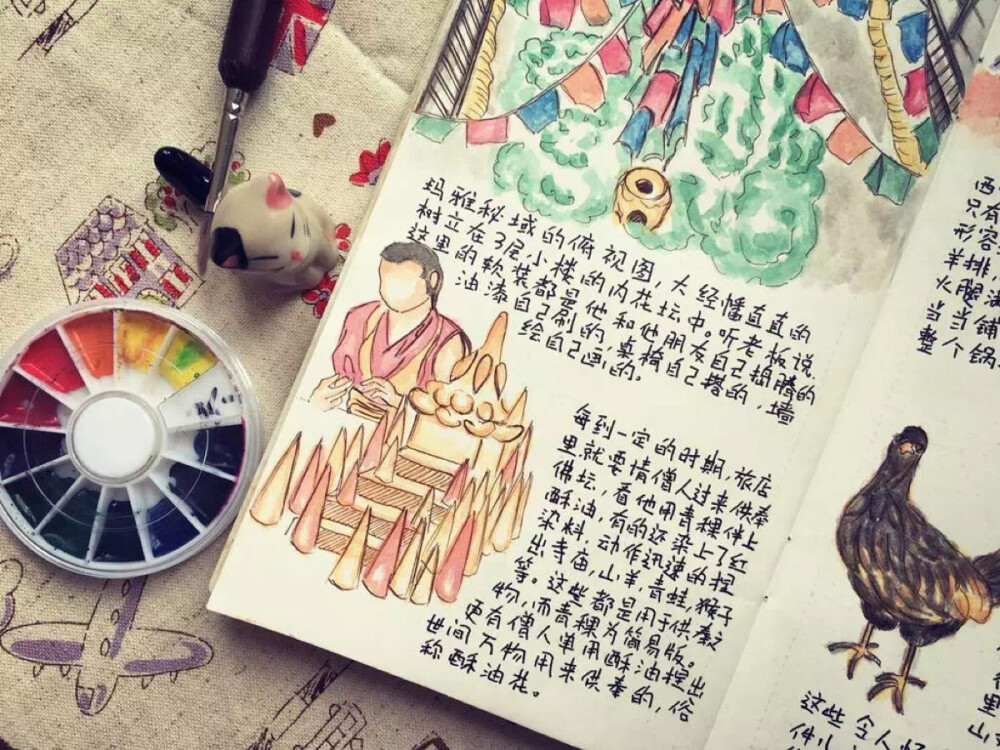 玛雅秘域的俯视图,大经幡直直的
树立在3层小楼的内花坛中。听老板说
这里的软装都是他和他朋友自己捣腾的
油漆自己刷的,桌椅自己搭的,墙
绘自己画的。
每到一定的时期,旅店
里就要情僧人过来供奉
佛坛,看他用青稞伴上
酥油,有的还染上了红
染料,动作迅速的捏
出寺庙,山羊,青蛙,猴子
等。这些都是用于供奉之
物,而青稞为简易版。
更有僧人单用酥油捏出
世间万物用来供奉的,俗
称酥油花。
西
只有
形容
羊排,
火腿
当当铺
整个锅
这些令人
件小
里
山